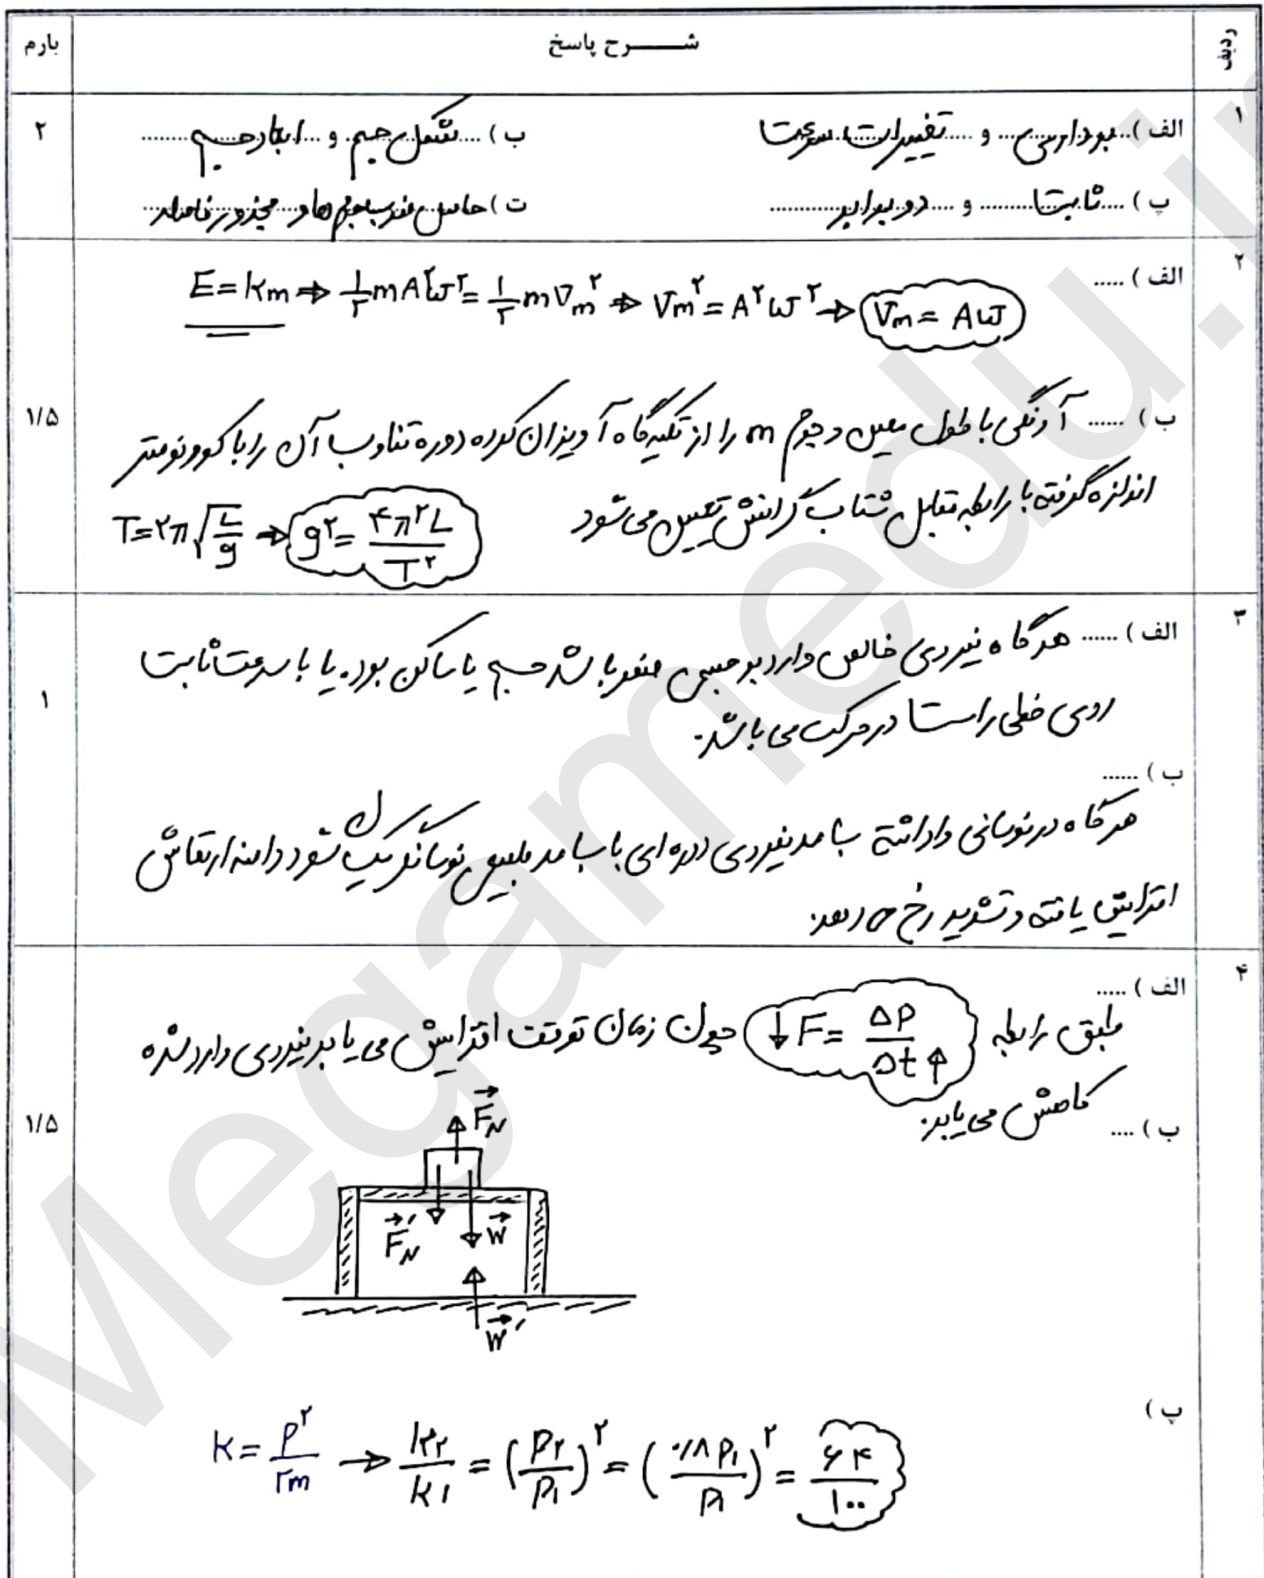 ردیف شــــرح پاسخ بارم
۱ الف) ..برداری.. و ....تغییرات سرعت ب) ....شکل جسم و ...ابعاد جسم........ ۲
پ) ....ثابت......... و .... دو برابر............ ت) حاصل ضرب جرم ها و مجذور فاصله
۲ الف) .....
E = Km ⇒ ۱/۲ mA²ω² = ۱/۲ mVm² ⇒ Vm² = A²ω² → Vm = Aω
ب) ...... آونگی با طول معین و جرم m را از تکیه گاه آویزان کرده دوره تناوب آن را با کرونومتر ۱/۵
اندازه گرفته با رابطه مقابل شتاب گرانش تعیین می شود
T = ۲π√(L/g) → g² = ۴π²L/T²
۳ الف) ...... هرگاه نیروی خالص وارد بر جسمی صفر باشد جسم یا ساکن بوده یا با سرعت ثابت ۱
روی خطی راست در حرکت می باشد.
ب) ......
هرگاه در نوسانی واداشته بسامد نیروی دوره ای با بسامد طبیعی نوسانگر یک شود دامنه ارتعاش
افزایش یافته و تشدید رخ می دهد.
۴ الف) .....
طبق رابطه ↓F = ΔP/Δt↑ چون زمان توقف افزایش می یابد نیروی وارد شده
کاهش می یابد.
ب) .... ۱/۵
F⃗N
F⃗'N W⃗
W⃗'
پ)
K = P²/۲m → K۲/K۱ = (P۲/P۱)² = (۰/۸P۱/P۱)² = ۶۴/۱۰۰
Megamedu.ir